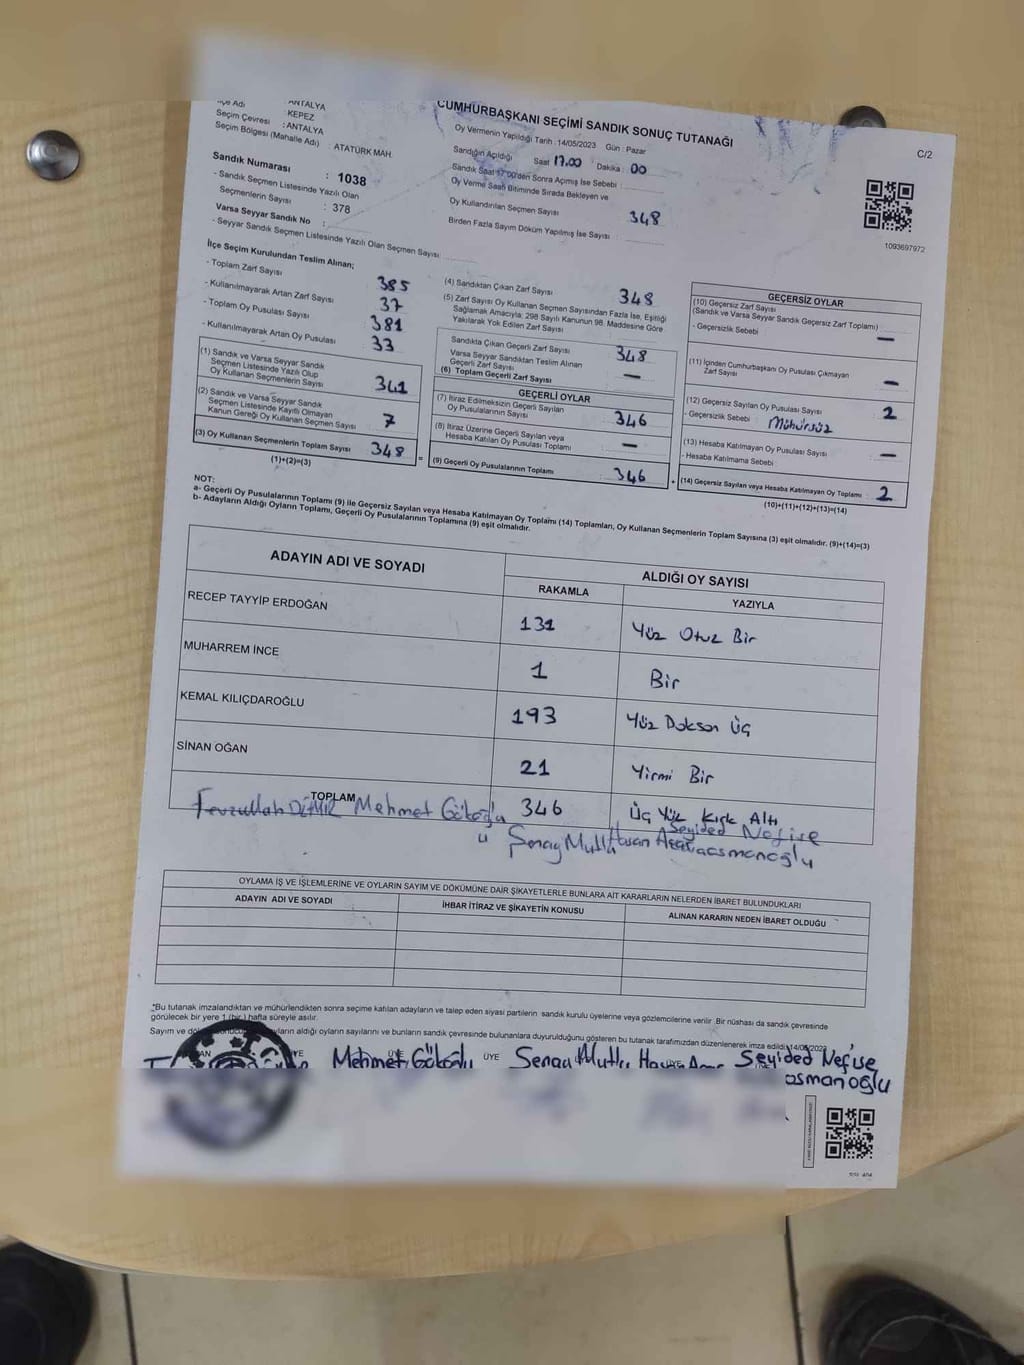 CUMHURBAŞKANI SEÇİMİ SANDIK SONUÇ TUTANAĞI
C/2
İlçe Adı : ANTALYA
KEPEZ
Seçim Çevresi : ANTALYA
Seçim Bölgesi (Mahalle Adı) : ATATÜRK MAH.
Sandık Numarası : 1038
- Sandık Seçmen Listesinde Yazılı Olan
Seçmenlerin Sayısı : 378
Varsa Seyyar Sandık No :
- Seyyar Sandık Seçmen Listesinde Yazılı Olan Seçmen Sayısı
Oy Vermenin Yapıldığı Tarih : 14/05/2023 Gün : Pazar
Sandığın Açıldığı Saat 17.00 Dakika : 00
Sandık Saat 17:00'den Sonra Açılmış İse Sebebi :
Oy Verme Saati Bitiminde Sırada Bekleyen ve
Oy Kullandırılan Seçmen Sayısı 348
Birden Fazla Sayım Döküm Yapılmış İse Sayısı
1093697972
İlçe Seçim Kurulundan Teslim Alınan;
- Toplam Zarf Sayısı 385
- Kullanılmayarak Artan Zarf Sayısı 37
- Toplam Oy Pusulası Sayısı 381
- Kullanılmayarak Artan Oy Pusulası 33
(1) Sandık ve Varsa Seyyar Sandık
Seçmen Listesinde Yazılı Olup
Oy Kullanan Seçmenlerin Sayısı 341
(2) Sandık ve Varsa Seyyar Sandık
Seçmen Listesinde Kayıtlı Olmayan
Kanun Gereği Oy Kullanan Seçmen Sayısı 7
(3) Oy Kullanan Seçmenlerin Toplam Sayısı 348 =
(1)+(2)=(3)
(4) Sandıktan Çıkan Zarf Sayısı 348
(5) Zarf Sayısı Oy Kullanan Seçmen Sayısından Fazla İse, Eşitliği
Sağlamak Amacıyla; 298 Sayılı Kanunun 98. Maddesine Göre
Yakılarak Yok Edilen Zarf Sayısı
Sandıkta Çıkan Geçerli Zarf Sayısı 348
Varsa Seyyar Sandıktan Teslim Alınan
Geçerli Zarf Sayısı —
(6) Toplam Geçerli Zarf Sayısı
GEÇERLİ OYLAR
(7) İtiraz Edilmeksizin Geçerli Sayılan
Oy Pusulalarının Sayısı 346
(8) İtiraz Üzerine Geçerli Sayılan veya
Hesaba Katılan Oy Pusulası Toplamı —
(9) Geçerli Oy Pusulalarının Toplamı 346 +
GEÇERSİZ OYLAR
(10) Geçersiz Zarf Sayısı
(Sandık ve Varsa Seyyar Sandık Geçersiz Zarf Toplamı)
- Geçersizlik Sebebi : —
(11) İçinden Cumhurbaşkanı Oy Pusulası Çıkmayan
Zarf Sayısı —
(12) Geçersiz Sayılan Oy Pusulası Sayısı 2
- Geçersizlik Sebebi : Mühürsüz
(13) Hesaba Katılmayan Oy Pusulası Sayısı —
- Hesaba Katılmama Sebebi
(14) Geçersiz Sayılan veya Hesaba Katılmayan Oy Toplamı 2
(10)+(11)+(12)+(13)=(14)
NOT:
a- Geçerli Oy Pusulalarının Toplamı (9) ile Geçersiz Sayılan veya Hesaba Katılmayan Oy Toplamı (14) Toplamları, Oy Kullanan Seçmenlerin Toplam Sayısına (3) eşit olmalıdır. (9)+(14)=(3)
b- Adayların Aldığı Oyların Toplamı, Geçerli Oy Pusulalarının Toplamına (9) eşit olmalıdır.
ADAYIN ADI VE SOYADI ALDIĞI OY SAYISI
RAKAMLA YAZIYLA
RECEP TAYYİP ERDOĞAN 131 Yüz Otuz Bir
MUHARREM İNCE 1 Bir
KEMAL KILIÇDAROĞLU 193 Yüz Doksan Üç
SİNAN OĞAN 21 Yirmi Bir
TOPLAM 346 Üç Yüz Kırk Altı
Mehmet Gökoğlu Seyided Nefise
Şenay Mutlu Hasan
OYLAMA İŞ VE İŞLEMLERİNE VE OYLARIN SAYIM VE DÖKÜMÜNE DAİR ŞİKAYETLERLE BUNLARA AİT KARARLARIN NELERDEN İBARET BULUNDUKLARI
ADAYIN ADI VE SOYADI İHBAR İTİRAZ VE ŞİKAYETİN KONUSU ALINAN KARARIN NEDEN İBARET OLDUĞU
*Bu tutanak imzalandıktan ve mühürlendikten sonra seçime katılan adayların ve talep eden siyasi partilerin sandık kurulu üyelerine veya gözlemcilerine verilir. Bir nüshası da sandık çevresinde
görülecek bir yere 1 (bir) hafta süreyle asılır.
Sayım ve oyların aldığı oyların sayılarını ve bunların sandık çevresinde bulunanlara duyurulduğunu gösteren bu tutanak tarafımızdan düzenlenerek imza edildi. 14/05/2023
ÜYE Mehmet Gökoğlu ÜYE Senay Mutlu Hasan Seyided Nefise
osmanoğlu